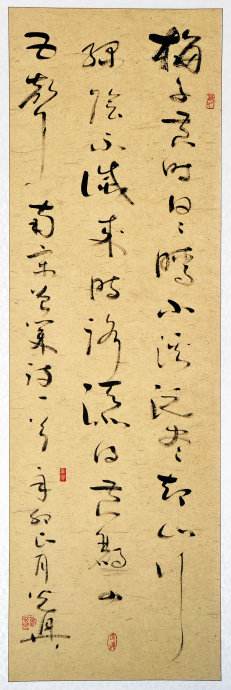 梅子黄时日〻晴小溪泛尽却山行
绿阴不减来时路添得黄鹂四
五声 南宋曾几诗一首 辛卯正月